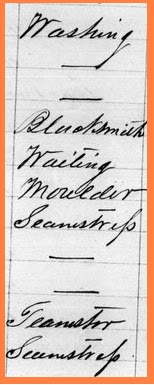 Washing
—
—
Blacksmith
Waiting
Moulder
Seamstress
—
—
Teamster
Seamstress